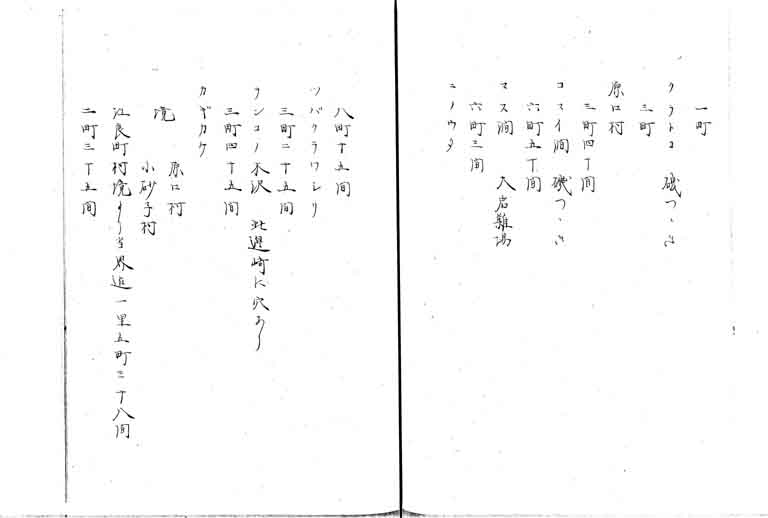 一町
クラトコ 磯つゝき
三町
原口村
三町四十間
コスイ澗 磯つゝき
六町五十間
マス澗 大岩難場
六町三間
ニノウタ
八町十五間
ツバクラワシリ
三町二十五間
ウンコノ木沢 此辺崎に穴あり
三町四十五間
カギカケ
境 原口村
小砂子村
江良町村境より当界迄一里五町二十八間
二町三十五間